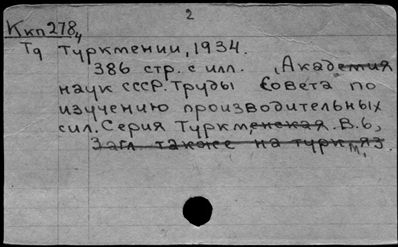 2
Ккп278,
Тq Туркмении, 1934.
386 стр. с илл. , Академия
наук СССР. Труды Совета по
изучению производительных
сил. Серия Туркменская. В.6,
Загл. также на туркм. яз.